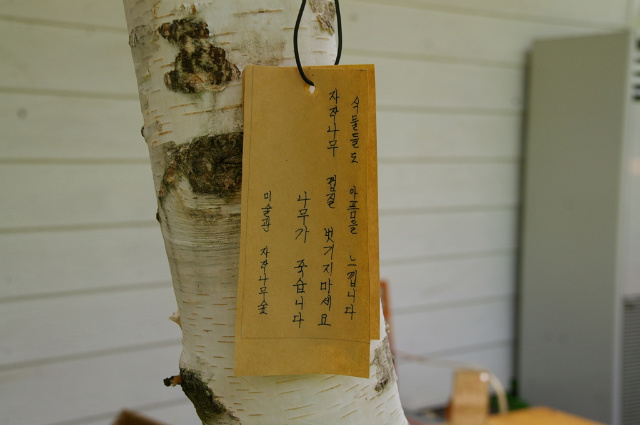 식물들도 아픔을 느낍니다
자작나무 껍질 벗기지마세요
나무가 죽습니다
미술관 자작나무숲